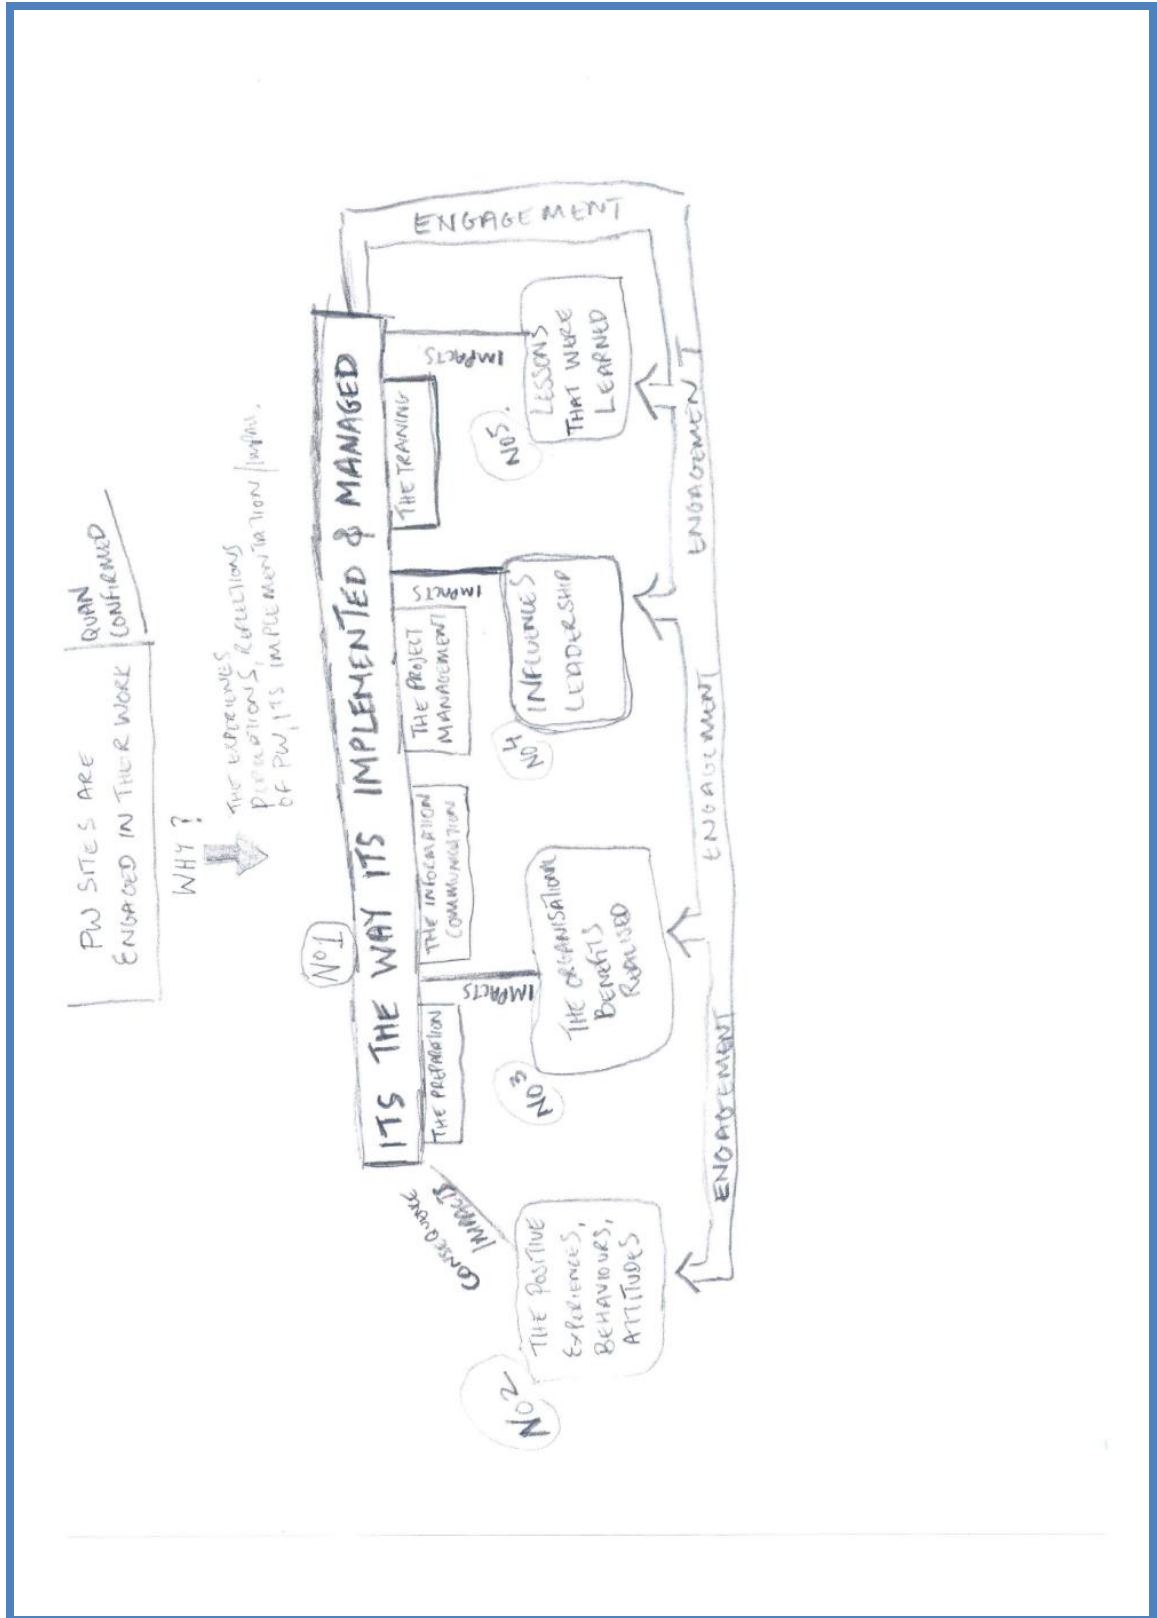 PW SITES ARE
ENGAGED IN THER WORK
QUAN
CONFIRMED
WHY?
THE EXPERIENCES
REFLECTIONS
OF PW, ITS IMPLEMENTATION /
No1
ITS THE WAY ITS IMPLEMENTED & MANAGED
THE PREPARATION
THE INFORMATION
COMMUNICATION
THE PROJECT
MANAGEMENT
THE TRAINING
CONSEQUENCE
IMPACTS
IMPACTS
IMPACTS
IMPACTS
No2
THE POSITIVE
EXPERIENCES,
BEHAVIOURS,
ATTITUDES
NO3
THE ORGANISATIONAL
BENEFITS
REALISED
NO4
INFLUENCES
LEADERSHIP
NO5.
LESSONS
THAT WERE
LEARNED
ENGAGEMENT
ENGAGEMENT
ENGAGEMENT
ENGAGEMENT